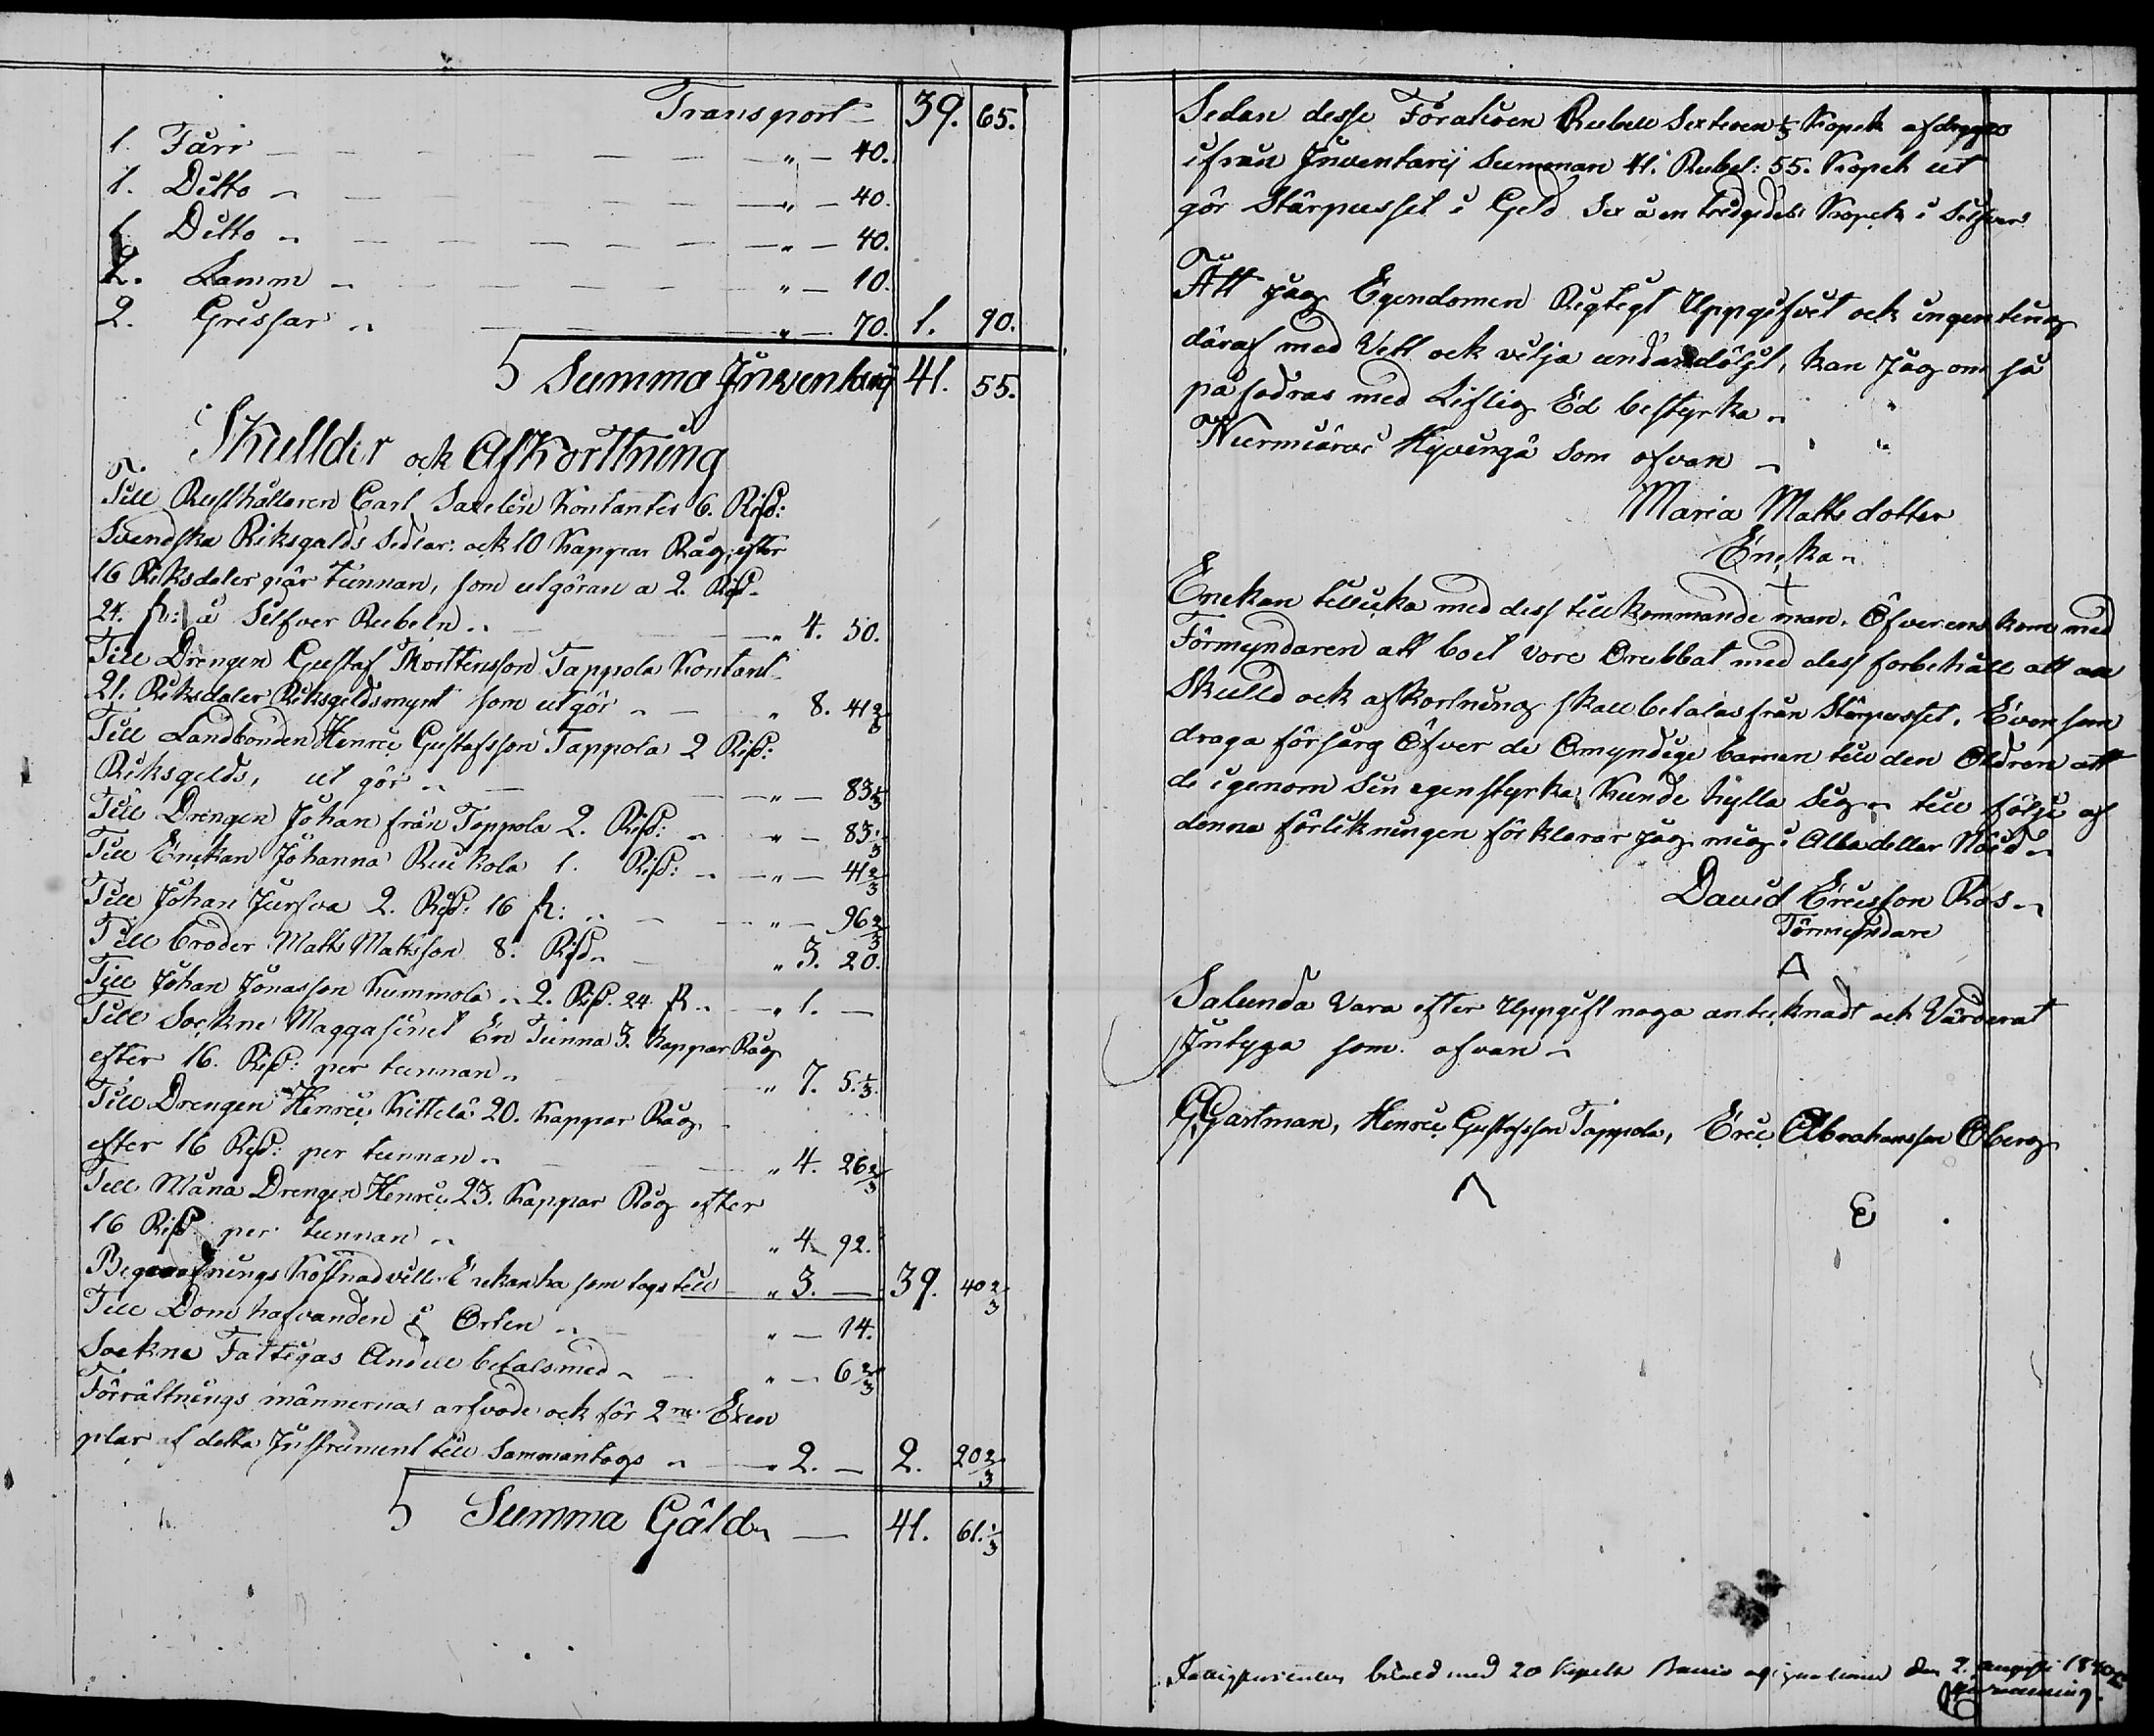 Transport 39. 65.
1. Fårr " — 40.
1. Ditto " — 40.
1. Ditto " — 40.
2. Lamm " — 10.
2. Grissar " — 70. 1. 90.
Summa Inventarij 41. 55.
Skullder ock Afkorttning
Till Rusthållaren Carl Saxelin Kontanter 6. Risd:
Svendska Riksgalds Sedlar: ock 10 Kappar Råg, efter
16 Riksdaler pär tunnan, som utgöran a 2. Risd
24. sk: å Silfver Rubeln " 4. 50.
Till Drengen Gustaf Morttensson Tappola Kontant
21. Riksdaler Riksgeldsmynt som utgör " 8. 41 2/6
Till Landbonden Henric Gustafsson Tappola 2 Risd:
Riksgelds, ut gör " — 83 1/3
Till Drengen Johan från Toppola 2. Risd: " — 83 1/3
Till Enckan Johanna Ruckola 1. Risd: " — 41 2/3
Till Johan Jursva 2. Risd: 16 sk: " — 96 2/3
Till broder Matts Mattsson 8. Risd " 3. 20.
Till Johan Jonasson Kummola 2. Risd. 24. sk " 1. —
Till Sockne Maggasinet En Tunna 3. kappar Råg
efter 16. Risd: per tunnan " 7. 5 1/3
Till Drengen Henric Kittelä 20. kappar Råg
efter 16 Risd: per tunnan " 4. 26 2/3
Till Måna Drengen Henric 23. Kappar Råg efter
16 Risd per tunnan " 4. 92.
Begrafnings Kostnad ville Enckan ha som togs till " 3. — 39. 40 2/3
Till Dom hafvanden i Orten " — 14.
Sockne Fattigas Andell betalsmed " — 6 2/3
Förrättnings männernas arfvode ock för 2ne Exem
plar af detta Instrument till Sammantogs " 2. — 2. 20 2/3
Summa Gäld 41. 61 1/3
Sedan desse Föratioen Rubell Sextioen 1/3 Kopek afdrages
ifrån Inventarij Summan 41. Rubel: 55. Kopek ut
gör Stärpusset i Geld Sex å en tredjedels Kopek i Silfver
Att jag Egendomen Rigtigt Uppgifvit ock ingenting
däraf med Vett ock vilja undandöljt, kan Jag om så
påfodras med Liflig Ed bestyrka
Nurmiärvi Hyvingä Som ofvan
Maria Matts dotter
Encka
+
Enckan tillicka med dess tillkommande man, Öfverens kom med
Förmyndaren att boet vore Orubbat med dess forbehåll att all
Skulld ock afkortning skall betalas från Stärpusset, Even som
draga försårg Öfver de Omyndige barnen till den Oldren att
de igenom Sin egenstyrka, Kunde hylla Sig till följe af
denna förlikningen förklarar jag mig i Alla dellar Nöid
David Ericsson Ros
Förmyndare
Λ
Salunda Vara efter Uppgift noga antecknadt och Värderat
Intyga som ofvan
G Gartman, Henric Gustafsson Tappola, Eric Abrahamsson Oberg
Λ
E
betald med 20 Kopek Banco den 2. Augusti 1840